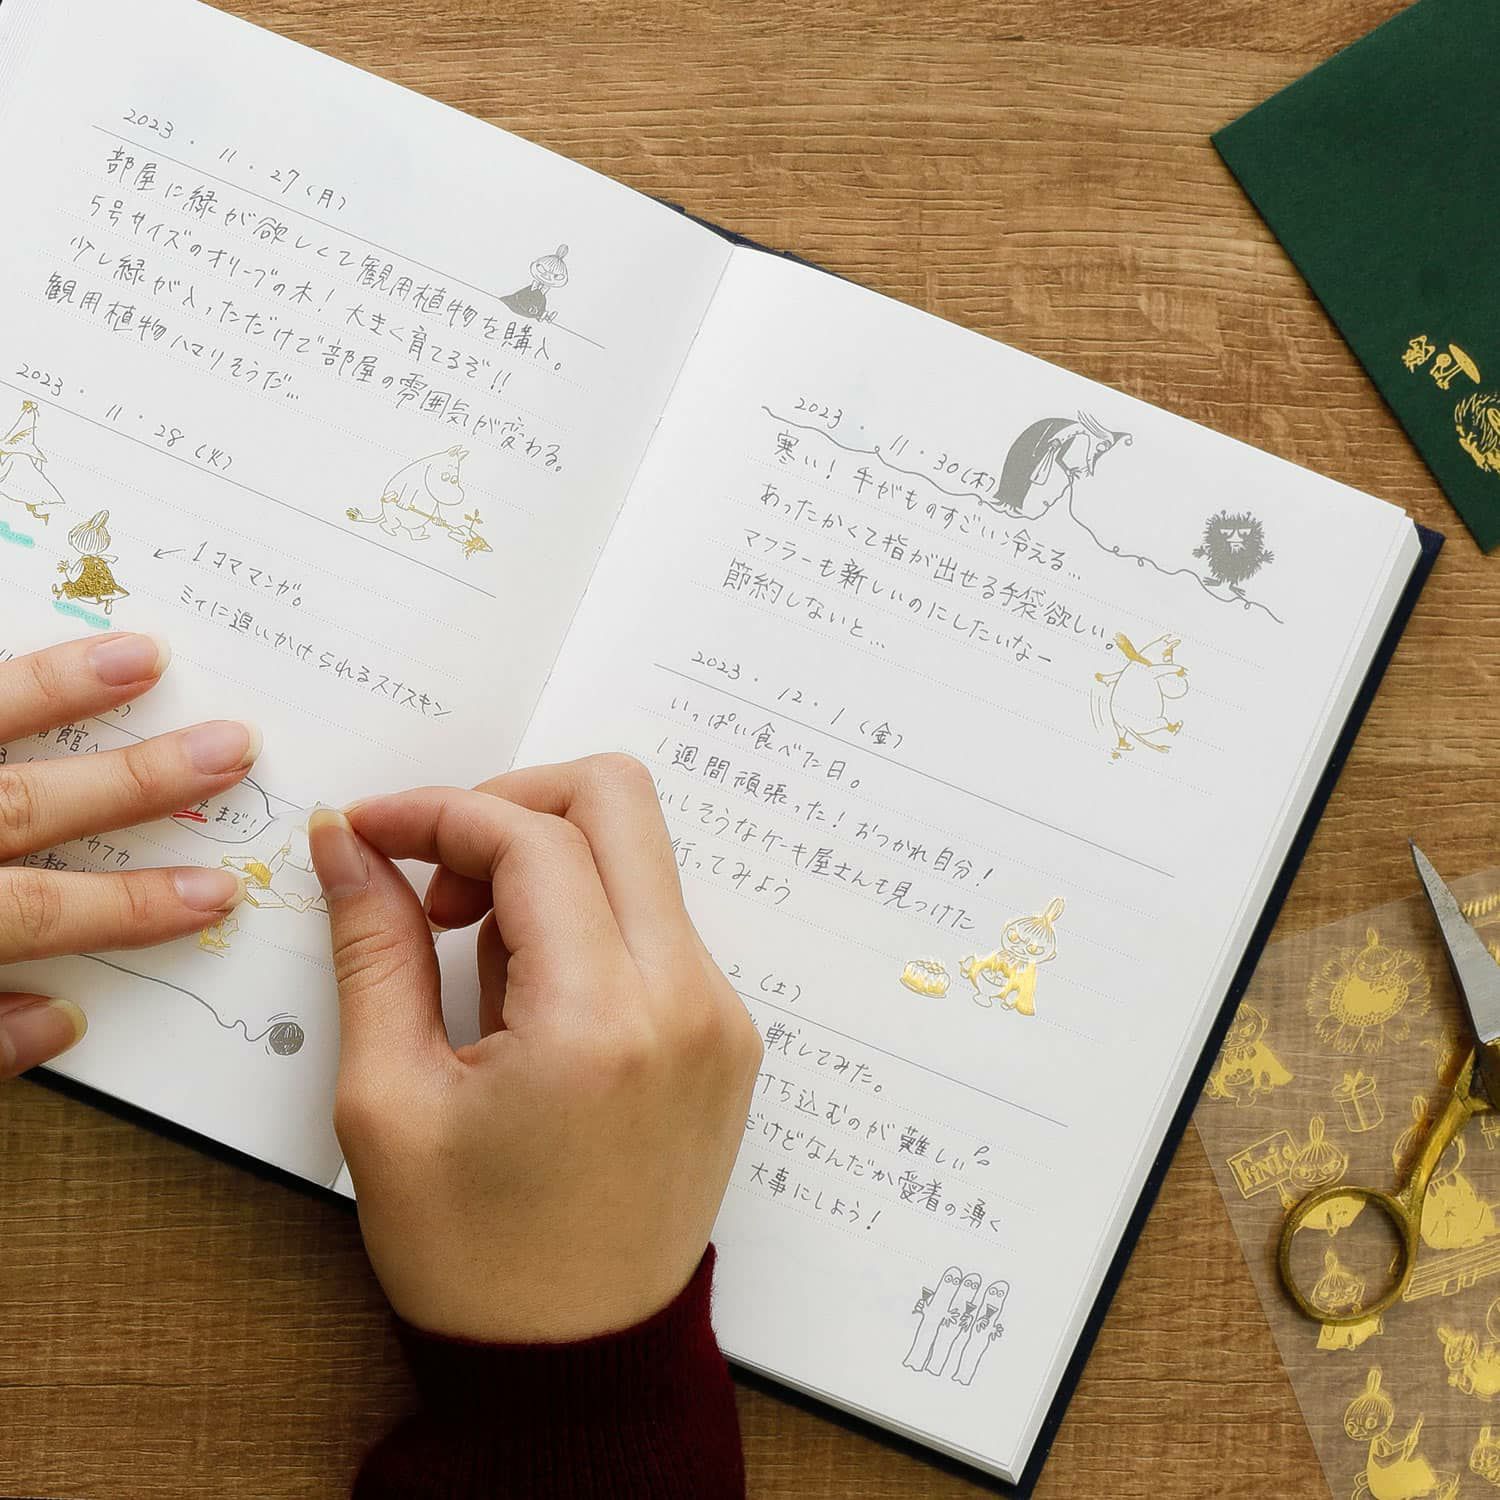 2023・11・27(月)
部屋に緑が欲しくて観用植物を購入。
5号サイズのオリーブの木！大きく育てるぞ!!
少し緑が入っただけで部屋の雰囲気が変わる。
観用植物ハマりそうだ…
2023・11・28(火)
↙1コママンガ。
ミイに追いかけられるスナフキン
館へ
土まで！
カフカ
に
2023・11・30(木)
寒い！手がものすごい冷える…
あったかくて指が出せる手袋欲しい。
マフラーも新しいのにしたいなー
節約しないと…
2023・12・1(金)
いっぱい食べた日。
1週間頑張った！おつかれ自分！
いしそうなケーキ屋さんも見つけた
行ってみよう
2(土)
戦してみた。
打ち込むのが難しい
だけどなんだか愛着の湧く
大事にしよう！
FINIS